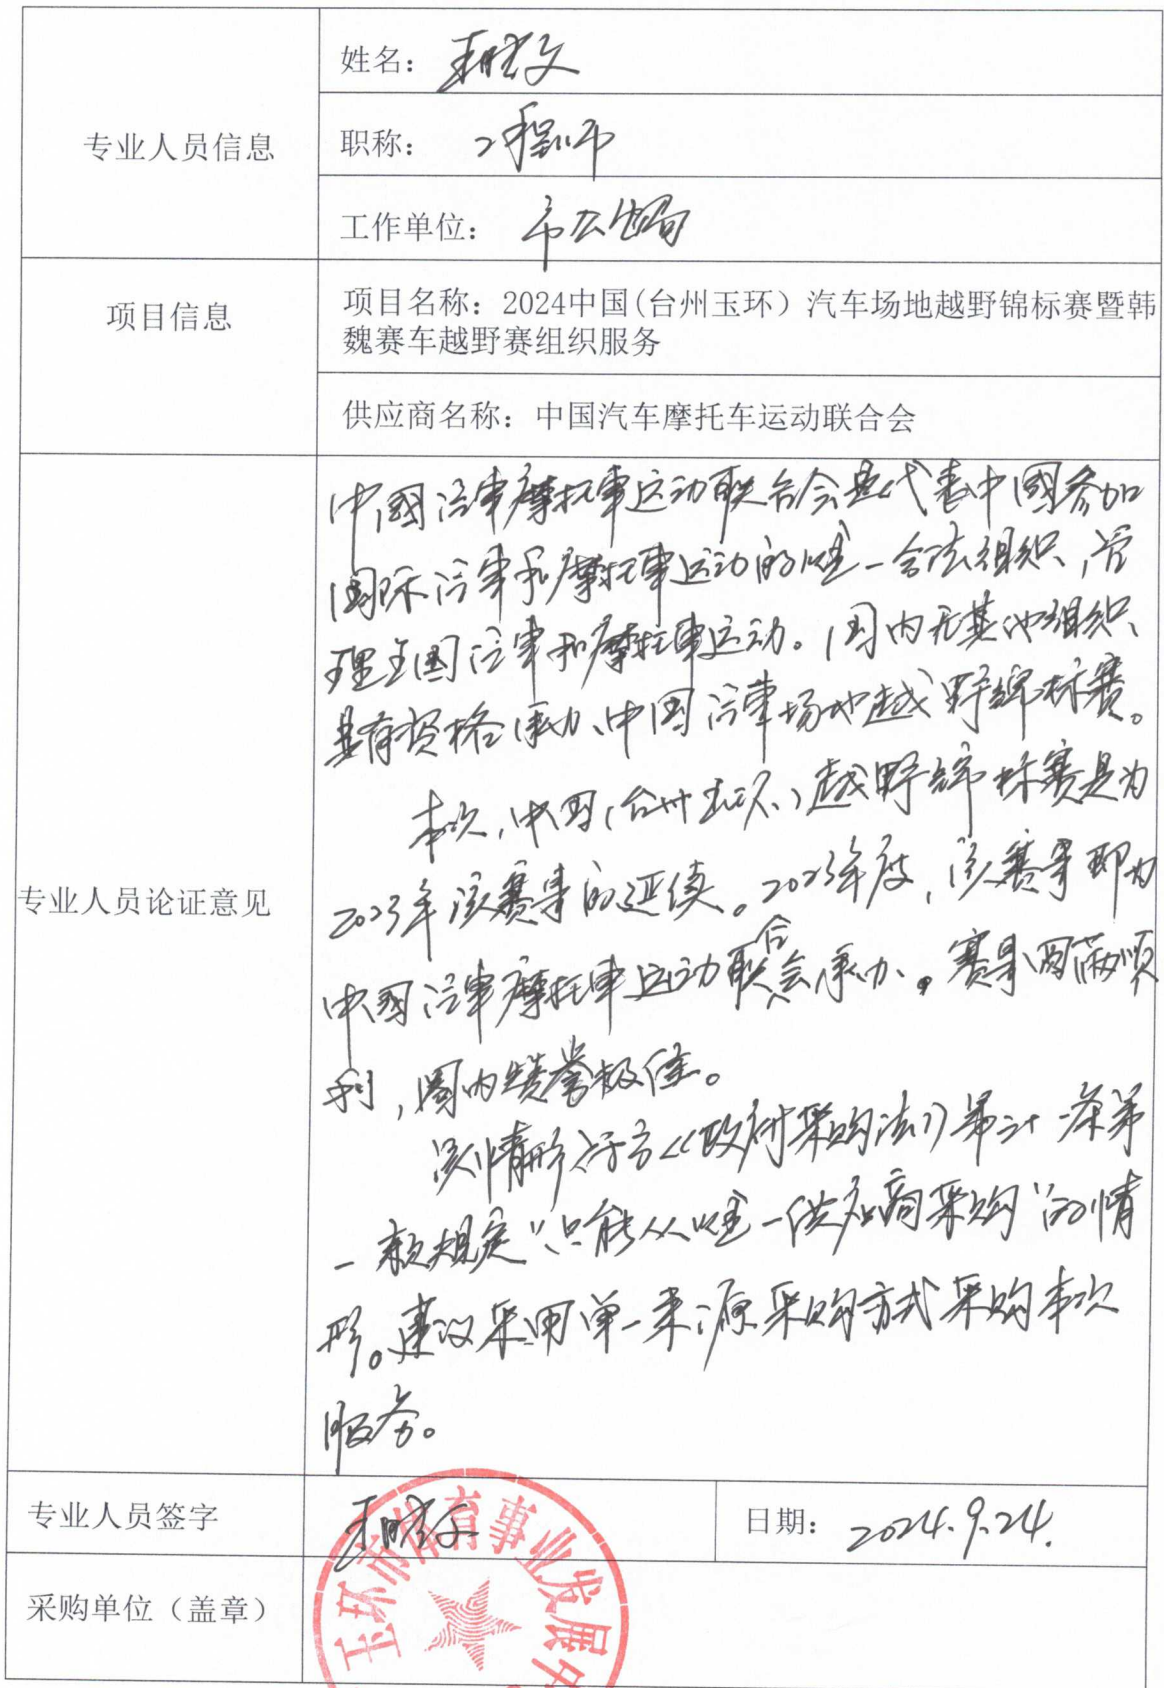 专业人员信息
姓名：
职称：工程师
工作单位：市公路局
项目信息
项目名称：2024中国(台州玉环）汽车场地越野锦标赛暨韩
魏赛车越野赛组织服务
供应商名称：中国汽车摩托车运动联合会
专业人员论证意见
中國汽車摩托車运动联合会是代表中國参加
国际汽車和摩托車运动的唯一合法组织，管
理全国汽車和摩托車运动。国内无其他组织
具有资格承办中国汽車场地越野锦标赛。
本次中国（台州玉环）越野锦标赛是为
2023年该赛事的延续。2023年度，该赛事即为
中國汽車摩托車运动联合会承办。赛事圆满顺
利，圈内赞誉极佳。
该情形符合《政府采购法》第三十一条第
一款规定“只能从唯一供应商采购”的情
形。建议采用单一来源采购方式采购本次
服务。
专业人员签字
日期：2024.9.24.
采购单位（盖章）
玉环市体育事业发展中